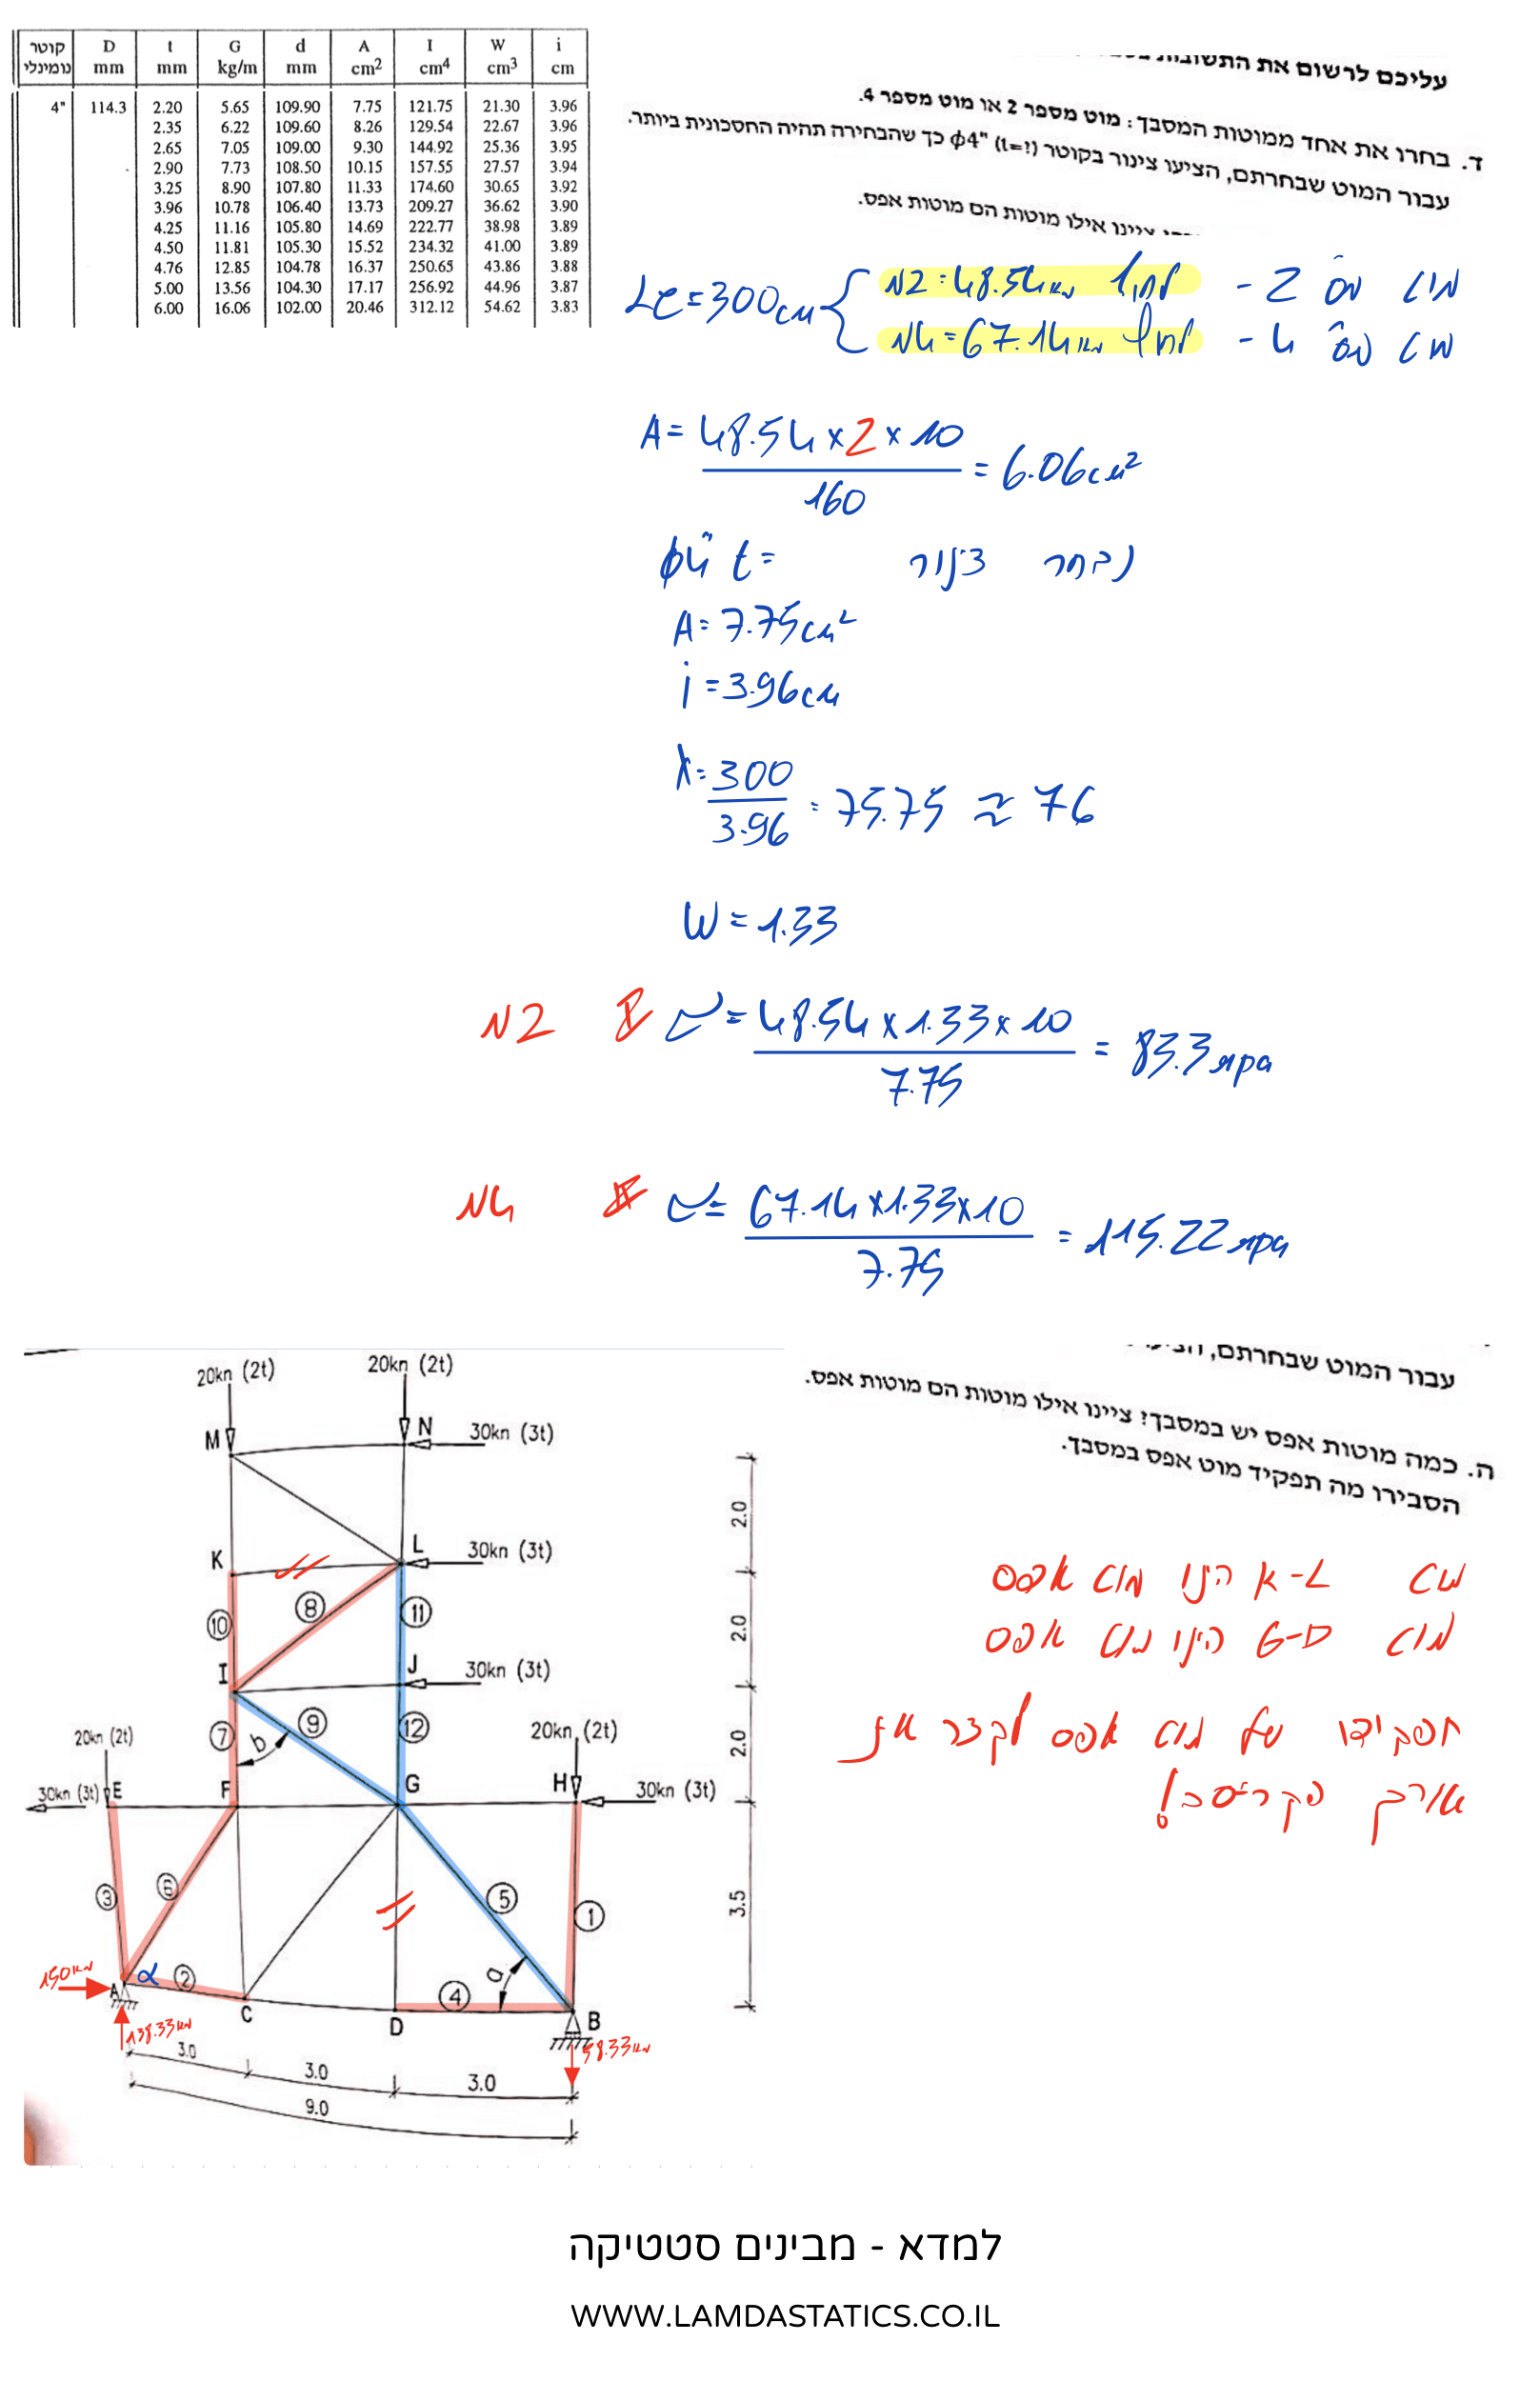 קוטר נומינלי D mm t mm G kg/m d mm A cm² I cm⁴ W cm³ i cm
4" 114.3 2.20 5.65 109.90 7.75 121.75 21.30 3.96
2.35 6.22 109.60 8.26 129.54 22.67 3.96
2.65 7.05 109.00 9.30 144.92 25.36 3.95
2.90 7.73 108.50 10.15 157.55 27.57 3.94
3.25 8.90 107.80 11.33 174.60 30.65 3.92
3.96 10.78 106.40 13.73 209.27 36.62 3.90
4.25 11.16 105.80 14.69 222.77 38.98 3.89
4.50 11.81 105.30 15.52 234.32 41.00 3.89
4.76 12.85 104.78 16.37 250.65 43.86 3.88
5.00 13.56 104.30 17.17 256.92 44.96 3.87
6.00 16.06 102.00 20.46 312.12 54.62 3.83
עליכם לרשום את התשובות
ד. בחרו את אחד ממוטות המסבך: מוט מספר 2 או מוט מספר 4.
עבור המוט שבחרתם, הציעו צינור בקוטר ϕ4" (t=?) כך שהבחירה תהיה החסכונית ביותר.
ציינו אילו מוטות הם מוטות אפס.
מוט מס' 2 - לחוץ N2=48.54 קנ
מוט מס' 4 - לחוץ N4=67.14 קנ
Le=300cm
A= 48.54 x 2 x 10 / 160 = 6.06cm²
נבחר צינור ϕ4" t=
A=7.75cm²
i=3.96cm
λ= 300 / 3.96 = 75.75 ≈ 76
W=1.33
N2 σ= 48.54 x 1.33 x 10 / 7.75 = 83.3 mpa
N4 σ= 67.14 x 1.33 x 10 / 7.75 = 115.22 mpa
עבור המוט שבחרתם,
ה. כמה מוטות אפס יש במסבך? ציינו אילו מוטות הם מוטות אפס.
הסבירו מה תפקיד מוט אפס במסבך.
מוט K-L הינו מוט אפס
מוט G-D הינו מוט אפס
תפקידו של מוט אפס לקצר את
אורך הקריסה!
20kn (2t) 20kn (2t)
M N 30kn (3t)
2.0
K L 30kn (3t)
10 8 11 2.0
I J 30kn (3t)
7 b 9 12 2.0
20kn (2t) 20kn (2t)
30kn (3t) E F G H 30kn (3t)
3 6 5 1 3.5
150קנ A α 2 4 a
C D B
138.33קנ 58.33קנ
3.0 3.0 3.0
9.0
למדא - מבינים סטטיקה
WWW.LAMDASTATICS.CO.IL